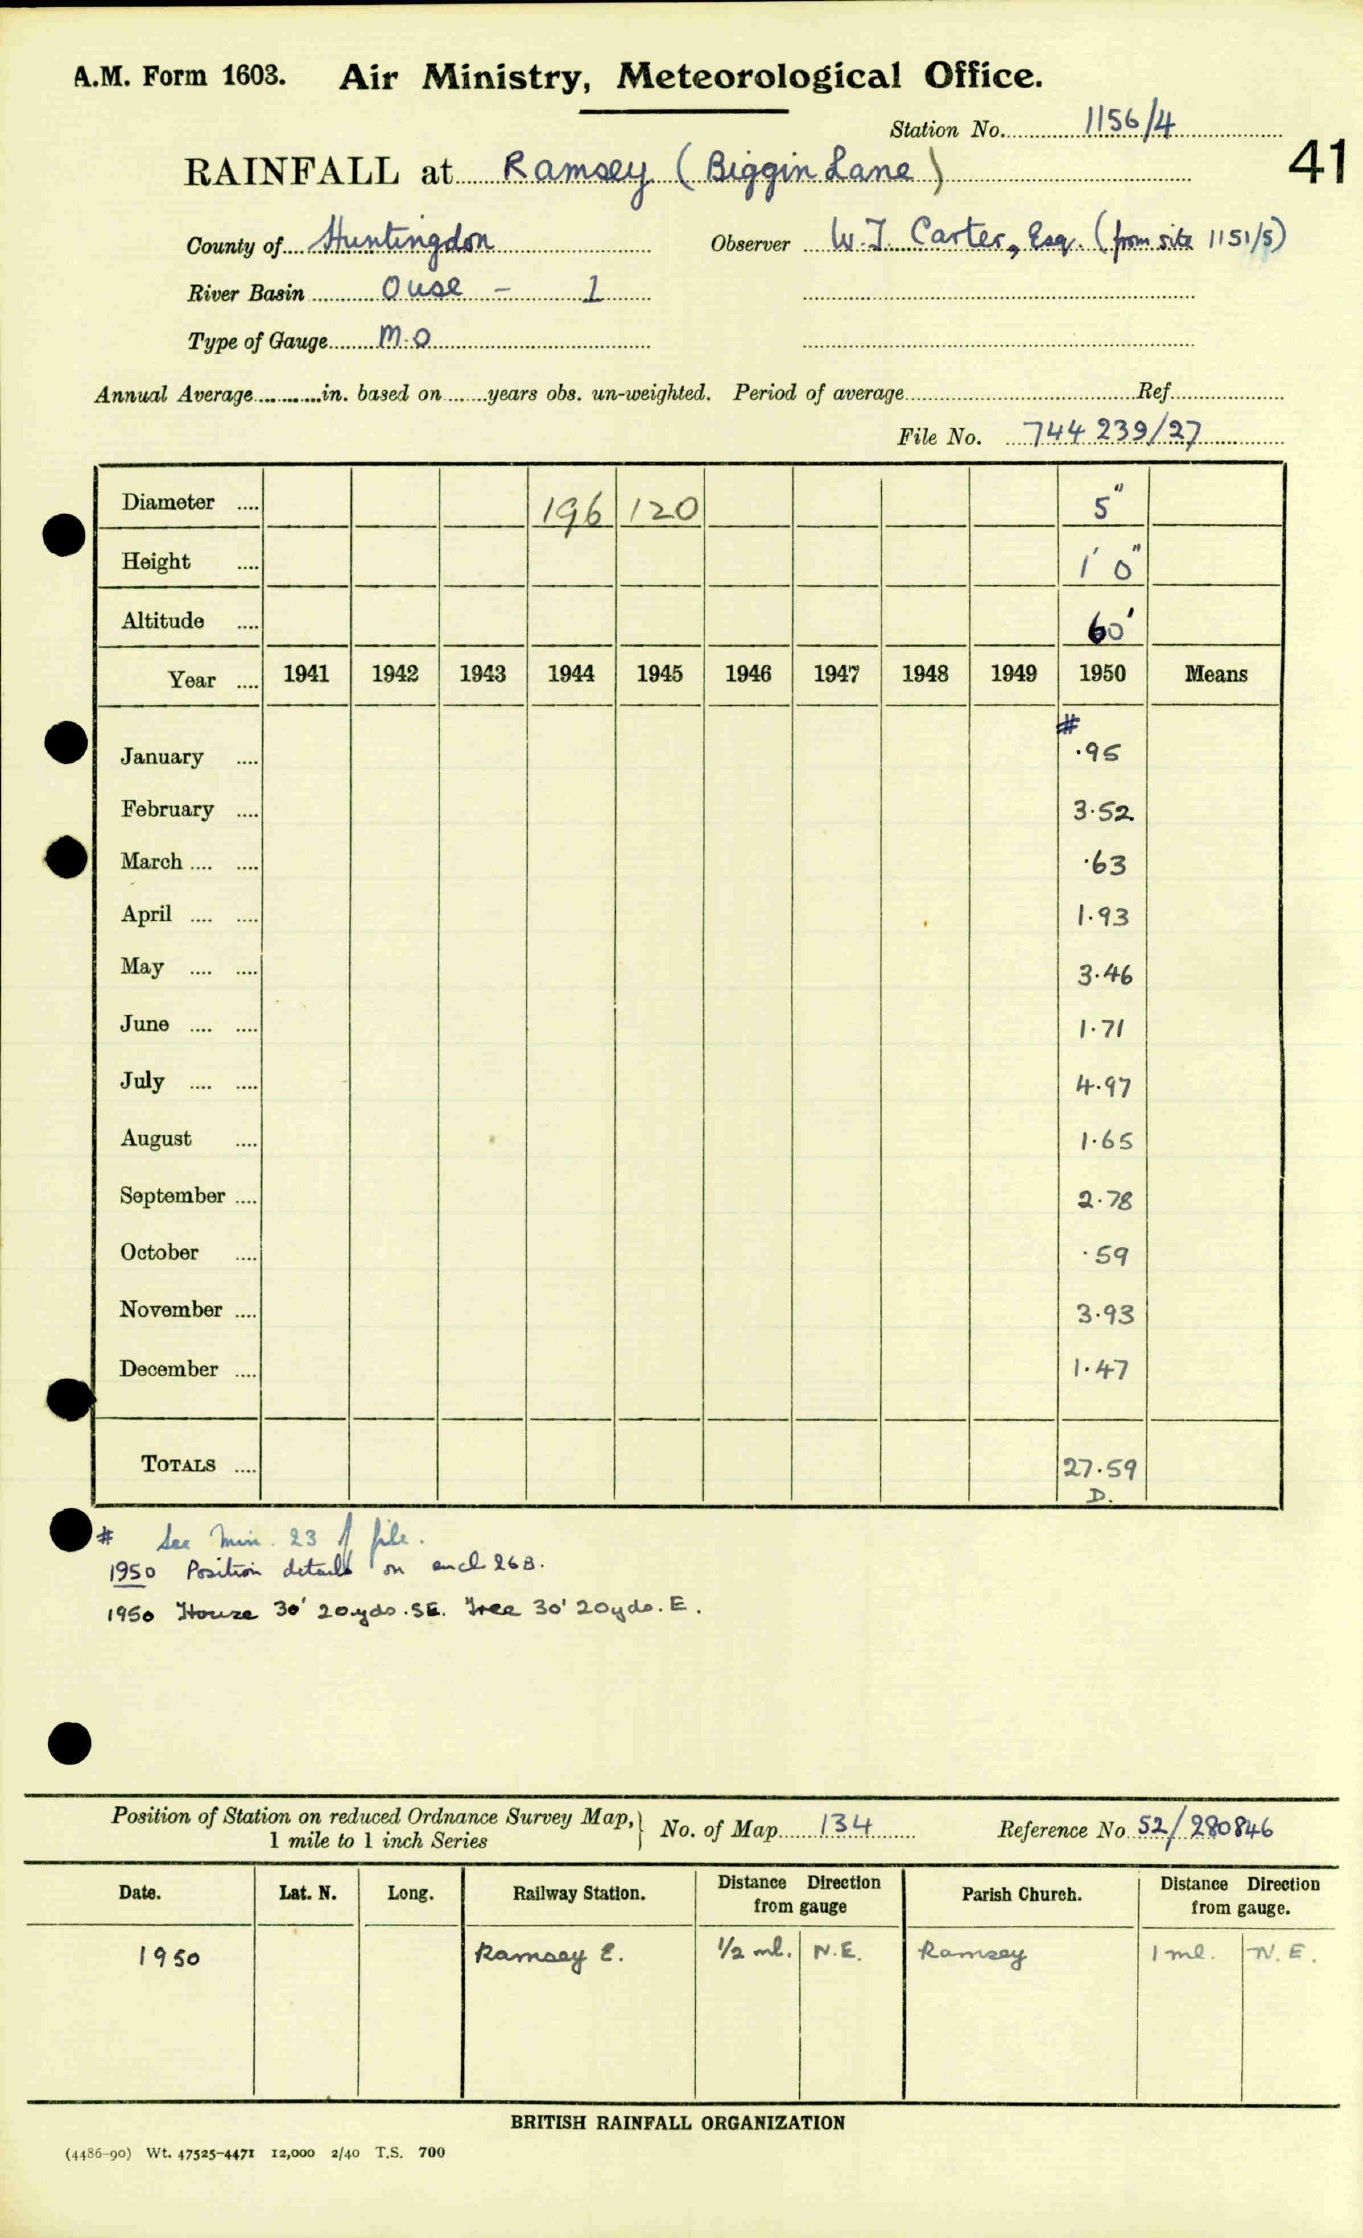 A.M. Form 1603. Air Ministry, Meteorological Office.
Station No. 1156/4
41
RAINFALL at Ramsey (Biggin Lane)
County of Huntingdon Observer W.J. Carter, Esq. (from site 1151/5)
River Basin Ouse - 1
Type of Gauge M.O
Annual Average in. based on years obs. un-weighted. Period of average Ref.
File No. 744 239/27
Diameter 196 120 5"
Height 1' 0"
Altitude 60'
Year 1941 1942 1943 1944 1945 1946 1947 1948 1949 1950 Means
#
January .95
February 3.52
March .63
April 1.93
May 3.46
June 1.71
July 4.97
August 1.65
September 2.78
October .59
November 3.93
December 1.47
TOTALS 27.59
D.
# See Min. 23 of file.
1950 Position details on encl 26B.
1950 House 30' 20yds. SE. Tree 30' 20yds. E.
Position of Station on reduced Ordnance Survey Map, 1 mile to 1 inch Series } No. of Map 134 Reference No 52/280846
Date. Lat. N. Long. Railway Station. Distance Direction from gauge Parish Church. Distance Direction from gauge.
1950 Ramsey E. 1/2 ml. N.E. Ramsey 1 ml. N.E.
BRITISH RAINFALL ORGANIZATION
(4486-90) Wt. 47525-4471 12,000 2/40 T.S. 700